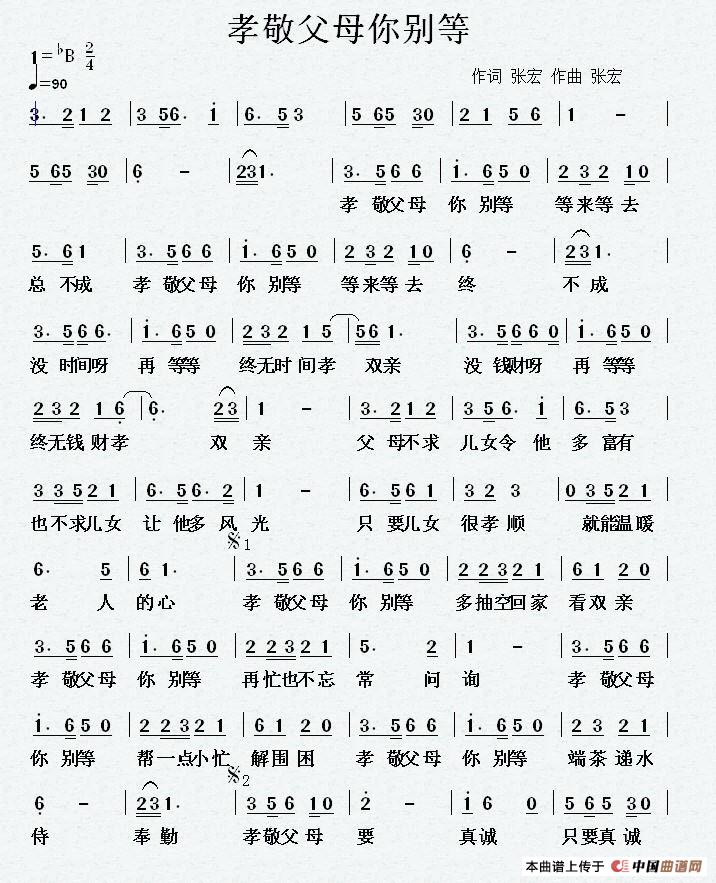 孝敬父母你别等
1=♭B 2/4
♩=90
作词 张宏 作曲 张宏
3. 2 1 2 | 3 5 6. i | 6. 5 3 | 5 6 5 3 0 | 2 1 5 6 | 1 - |
5 6 5 3 0 | 6 - | 2 3 1. | 3. 5 6 6 | i. 6 5 0 | 2 3 2 1 0 |
孝 敬父母 你 别等 等来等去
5. 6 1 | 3. 5 6 6 | i. 6 5 0 | 2 3 2 1 0 | 6 - | 2 3 1. |
总 不成 孝 敬父母 你 别等 等来等去 终 不成
3. 5 6 6. | i. 6 5 0 | 2 3 2 1 5 | 5 6 1. | 3. 5 6 6 0 | i. 6 5 0 |
没 时间呀 再 等等 终无时间孝 双亲 没 钱财呀 再 等等
2 3 2 1 6 | 6. 2 3 | 1 - | 3. 5 2 1 | 3 5 6. i | 6. 5 3 |
终无钱 财孝 双 亲 父 母不求 儿女令 他 多 富有
3 3 5 2 1 | 6. 5 6. 2 | 1 - | 3. 5 2 1 | 3 2 3 | 0 3 5 2 1 |
也不求儿女 让 他多 风 光 只 要儿女 很孝顺 就能温暖
𝄋1
6. 5 | 6 1. | 3. 5 6 6 | i. 6 5 0 | 2 2 3 2 1 | 6 1 2 0 |
老 人 的心 孝 敬父母 你 别等 多抽空回家 看双亲
3. 5 6 6 | i. 6 5 0 | 2 2 3 2 1 | 5. 2 | 1 - | 3. 5 6 6 |
孝 敬父母 你 别等 再忙也不忘 常 问 询 孝 敬父母
i. 6 5 0 | 2 2 3 2 1 | 6 1 2 0 | 3. 5 6 6 | i. 6 5 0 | 2 3 2 1 |
你 别等 帮一点小忙 解围困 孝 敬父母 你 别等 端茶递水
𝄋2
6 - | 2 3 1. | 3 5 6 1 0 | 2 - | i 6 0 | 5 6 5 3 0 |
侍 奉勤 孝敬父母 要 真诚 只要真诚
本曲谱上传于 中国曲谱网